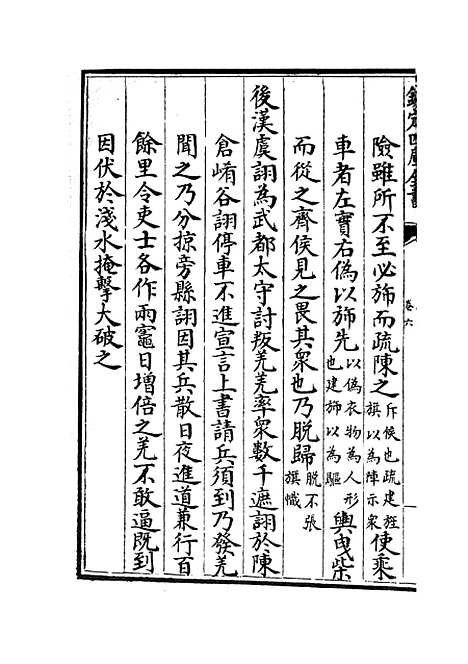 欽定四庫全書
卷六
險雖所不至必斾而疏陳之斥候也疏建旌旗以為陣示衆使乘
車者左實右偽以斾先以偽衣物為人形也建斾以為驅輿曳柴
而從之齊侯見之畏其衆也乃脱歸脱不張旗幟
後漢虞詡為武都太守討叛羌羌率衆數千遮詡於陳
倉崤谷詡停車不進宣言上書請兵須到乃發羌
聞之乃分掠旁縣詡因其兵散日夜進道兼行百
餘里令吏士各作兩竈日増倍之羌不敢逼既到
因伏於淺水掩擊大破之